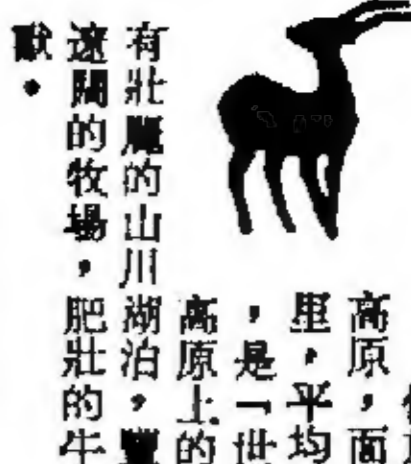 高原，面
里，平均
，是「世
高原上的
有壯麗的山川湖泊，豐
遼闊的牧場，肥壯的牛
獸。